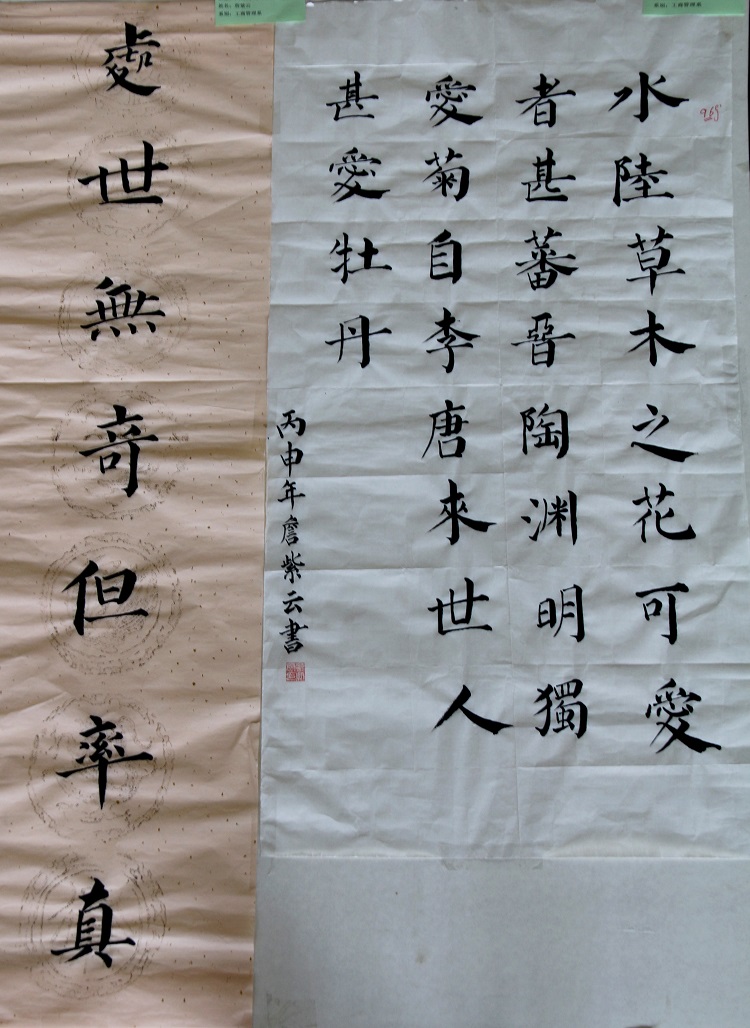 水陸草木之花可愛
者甚蕃晉陶渊明獨
愛菊自李唐來世人
甚愛牡丹
丙申年詹紫云書
處世無奇但率真